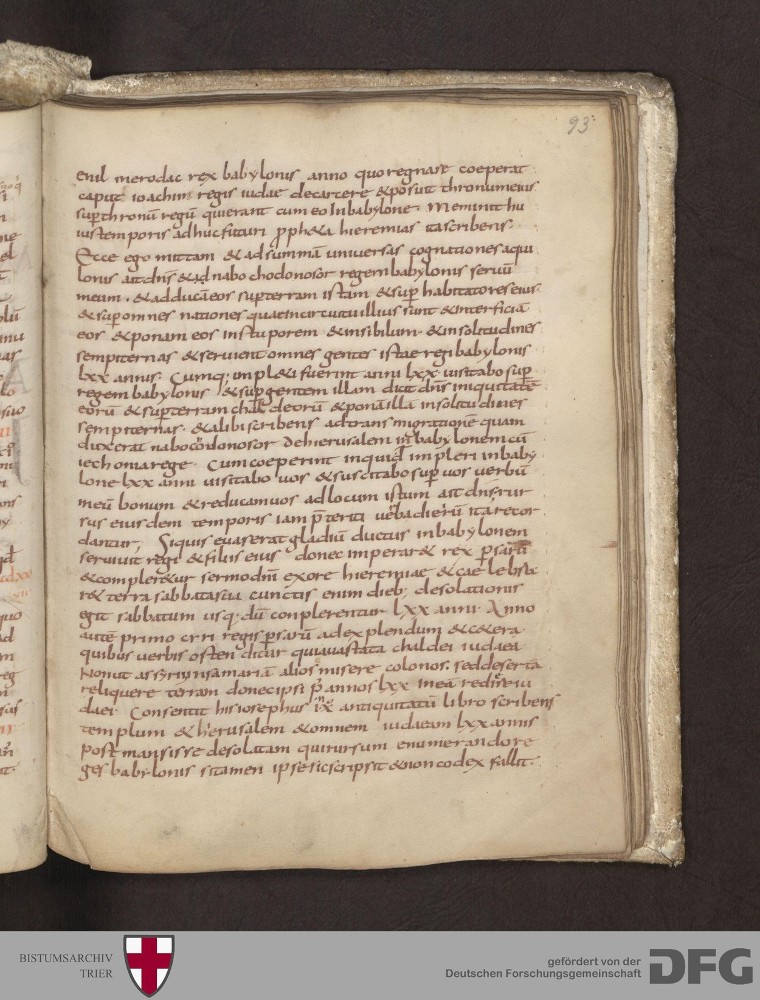 93
euil merodac rex babylonis anno quo regnare coeperat
caput ioachim regis iudae de carcere & posuit thronum eius
sup thronū regū qui erant cum eo In babylone. Meminit hu
ius temporis adhuc futuri pph&a hieremias ita scribens.
Ecce ego mittam & adsummā universas cognationes aqui
lonis ait dns & ad nabochodonosor regem babylonis servū
meum. & adducā eos sup terram istam & sup habitatores eius
& sup omnes nationes quae in circuitu illius sunt & interficiā
eos & ponam eos in stuporem & in sibilum & in solitudines
sempiternas & servient omnes gentes istae regi babylonis
lxx annis. Cumq; impl&i fuerint anni lxx visitabo sup
regem babylonis & sup gentem illam dicit dns iniquitatē
eorū & sup terram chaldeorū & ponā illā in solitudines
sempiternas. & alibi scribens ad transmigrationē quam
duxerat nabocodonosor de hierusalem in babylonem cū
iechonia rege. Cum coeperint inquid impleri in baby
lone lxx anni visitabo vos & suscitabo sup vos verbū
meū bonum & reducam vos ad locum istum ait dns rur
sus eiusdem temporis iam p̄teriti verba dierū ita recor
dantur, Siquis evaserat gladiū ductus in babylonem
servivit regi & filiis eius donec imperar& rex psarū
& compler&ur sermo dni ex ore hieremiae & caelebra
r& terra sabbata sua cunctis enim dieb; desolationis
egit sabbatum usq; dū conplerentur lxx anni Anno
autē primo cyri regis psarū ad explendum & c&era
quibus verbis ostenditur quia vastata chaldei iudaea
Non ut assyrii in samariā alios misere colonos. sed desertā
reliquere terram donec ipsi p̄ annos lxx in eā redire iu
daei Consentit his iosephus ix antiquitatū libro scribens
templum & hierusalem & omnem iudaeam lxx annis
post mansisse desolatam qui rursum enumerando re
ges babylonis si tamen ipse sic scripsit & non codex fallit.
BISTUMSARCHIV
TRIER
gefördert von der
Deutschen Forschungsgemeinschaft
DFG